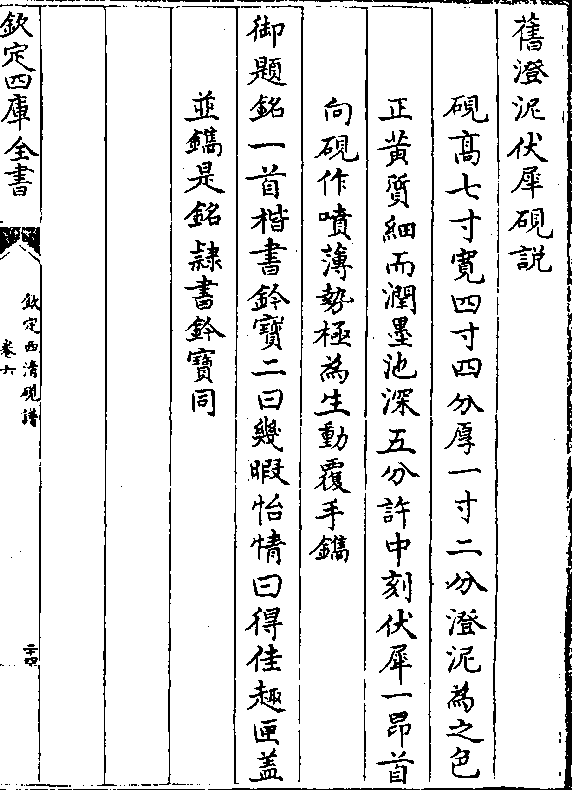 舊澄泥伏犀硯說
硯高七寸寬四寸四分厚一寸二分澄泥為之色
正黃質細而潤墨池深五分許中刻伏犀一昂首
向硯作噴薄勢極為生動覆手鐫
御題銘一首楷書鈐寶二曰幾暇怡情曰得佳趣匣蓋
並鐫是銘隷書鈐寶同
欽定四庫全書
欽定西清硯譜
卷六
二十四